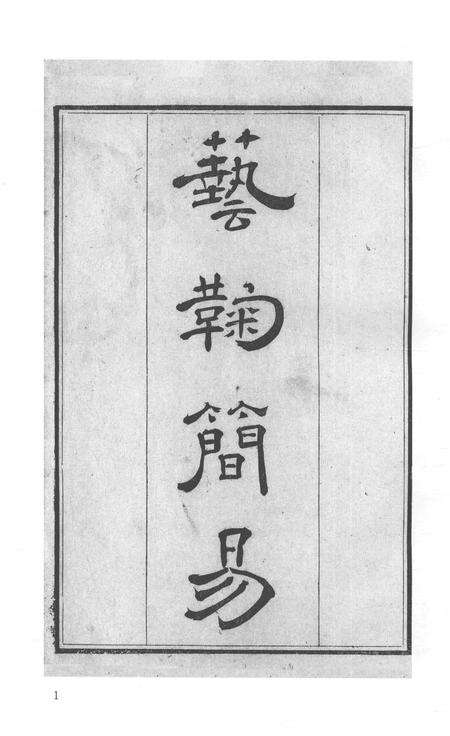 藝鞠簡易
1